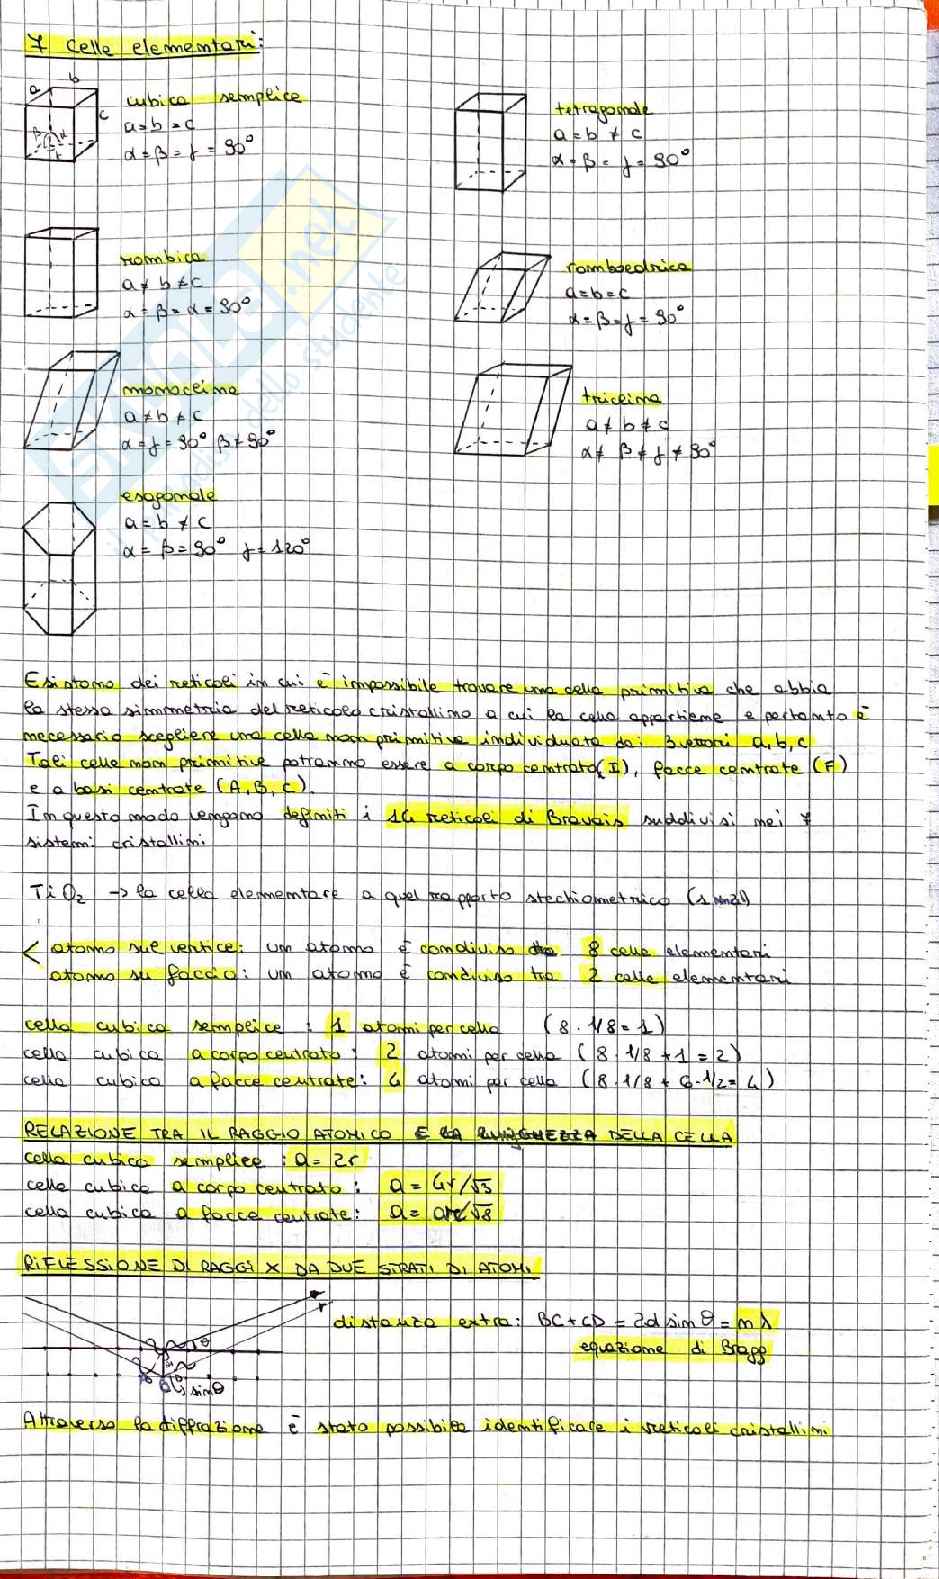 7 celle elementari:
a b c
β α γ
cubica semplice
a=b=c
α=β=γ=90°
tetragonale
a=b≠c
α=β=γ=90°
rombica
a≠b≠c
α=β=α=90°
romboedrica
a=b=c
α=β=γ=90°
monoclina
a≠b≠c
α=γ=90° β≠90°
triclina
a≠b≠c
α≠β≠γ≠90°
esagonale
a=b≠c
α=β=90° γ=120°
Esistono dei reticoli in cui è impossibile trovare una cella primitiva che abbia
la stessa simmetria del reticolo cristallino a cui la cella appartiene e pertanto è
necessario scegliere una cella non primitiva individuata dai 3 vettori a,b,c
Tali celle non primitive potranno essere a corpo centrato(I), facce centrate (F)
e a basi centrate (A,B,C).
In questo modo vengono definiti i 14 reticoli di Bravais suddivisi nei 7
sistemi cristallini.
TiO₂ → la cella elementare a quel rapporto stechiometrico
< atomo sul vertice: un atomo è condiviso tra 8 celle elementari
atomo su faccia: un atomo è condiviso tra 2 celle elementari
cella cubica semplice : 1 atomi per cella (8·1/8=1)
cella cubica a corpo centrato: 2 atomi per cella (8·1/8+1=2)
cella cubica a facce centrate: 4 atomi per cella (8·1/8+6·1/2=4)
RELAZIONE TRA IL RAGGIO ATOMICO E LA LUNGHEZZA DELLA CELLA
cella cubica semplice : a=2r
cella cubica a corpo centrato: a=4r/√3
cella cubica a facce centrate: a= /√8
RIFLESSIONE DI RAGGI X DA DUE STRATI DI ATOMI
distanza extra: BC+CD=2d sinθ=nλ
equazione di Bragg
θ
sinθ
Attraverso la diffrazione è stato possibile identificare i reticoli cristallini
.net
dello studente